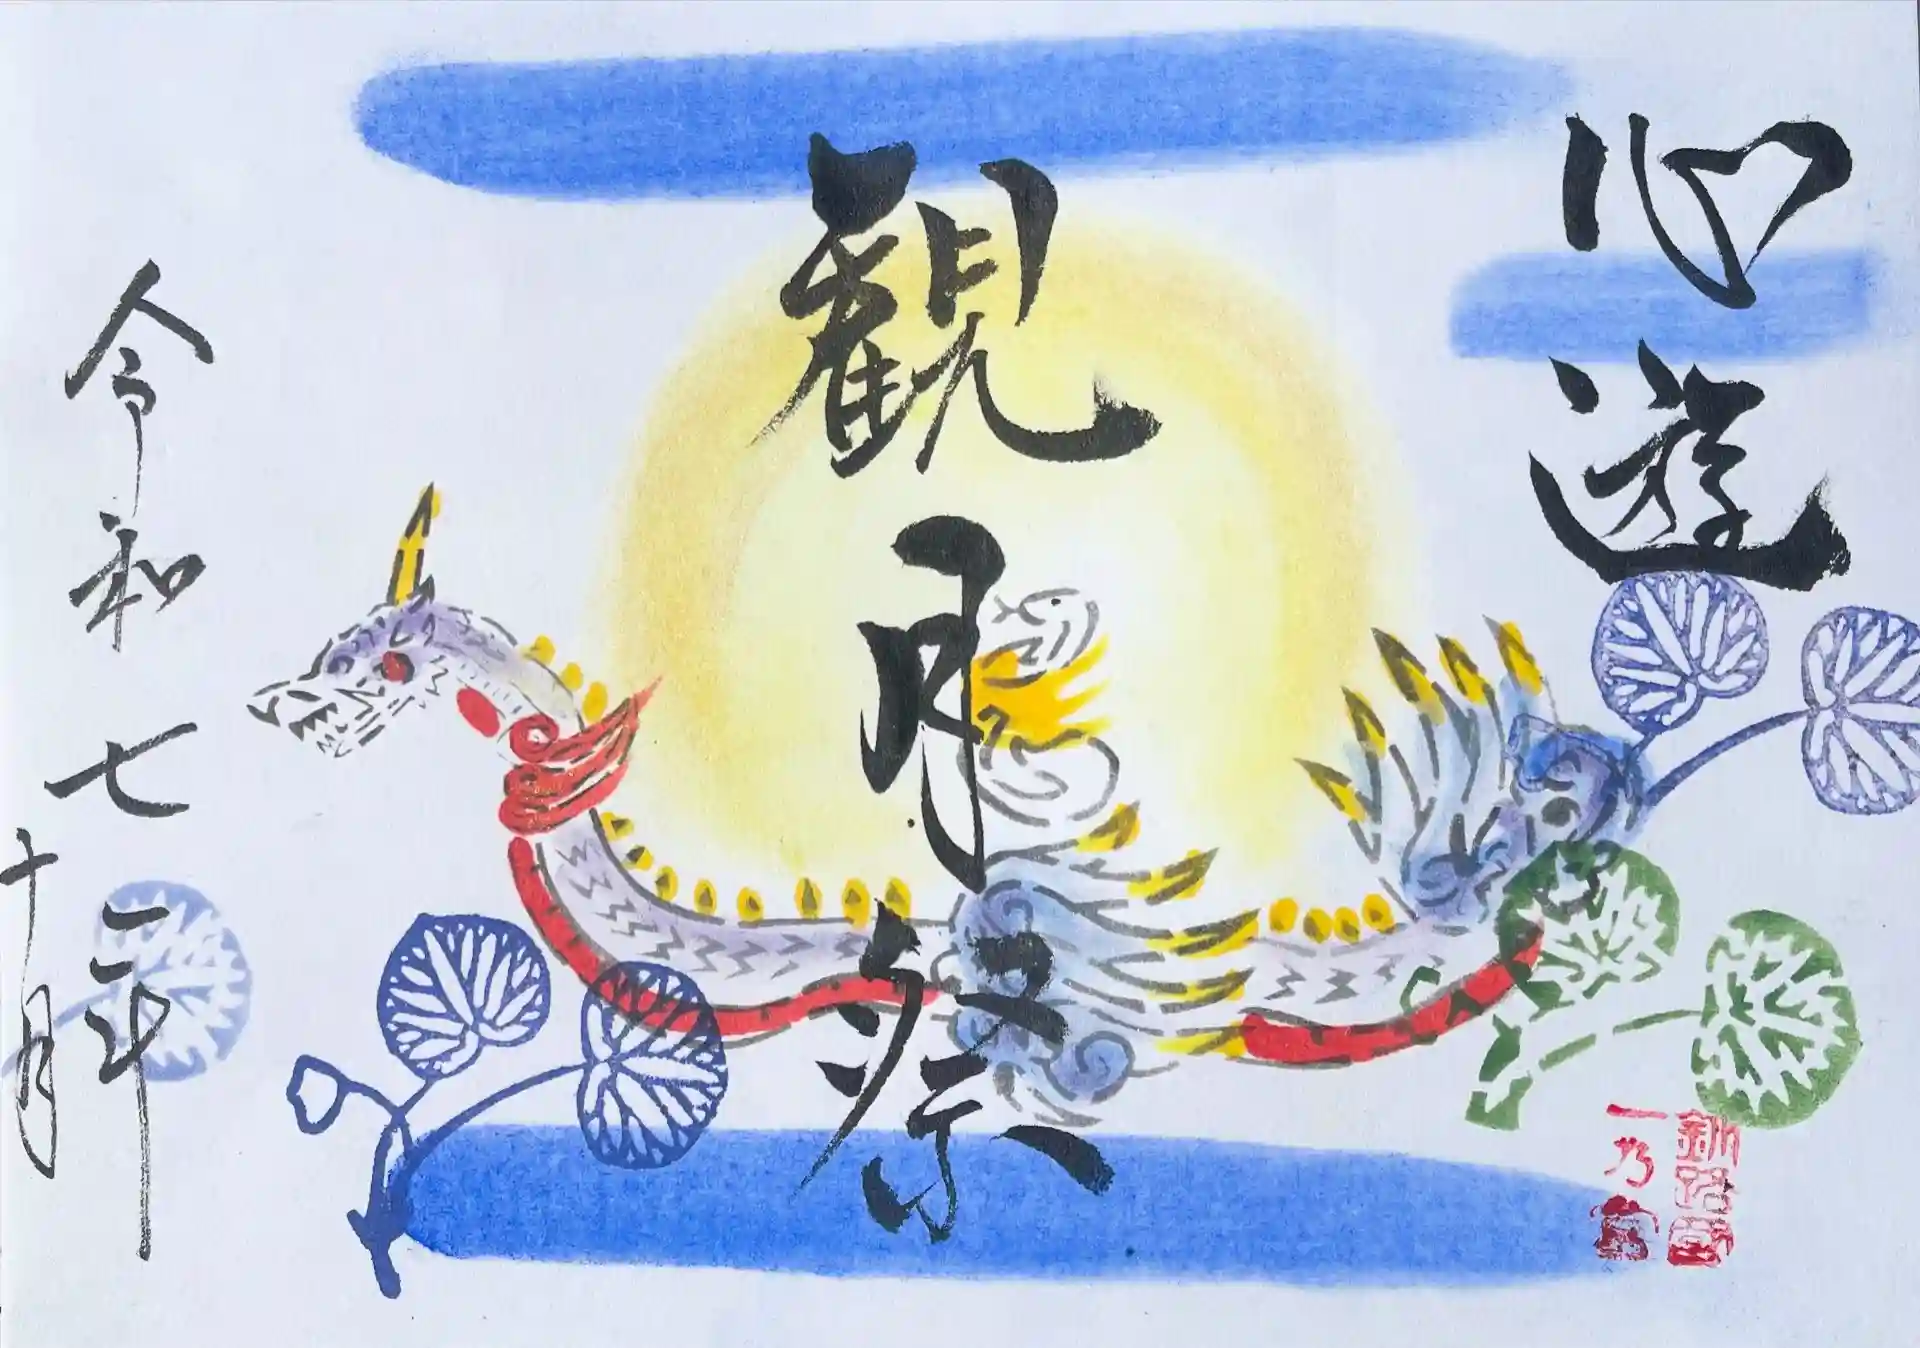 心遊
観月祭
令和七年
十月
釧路國
一乃宮